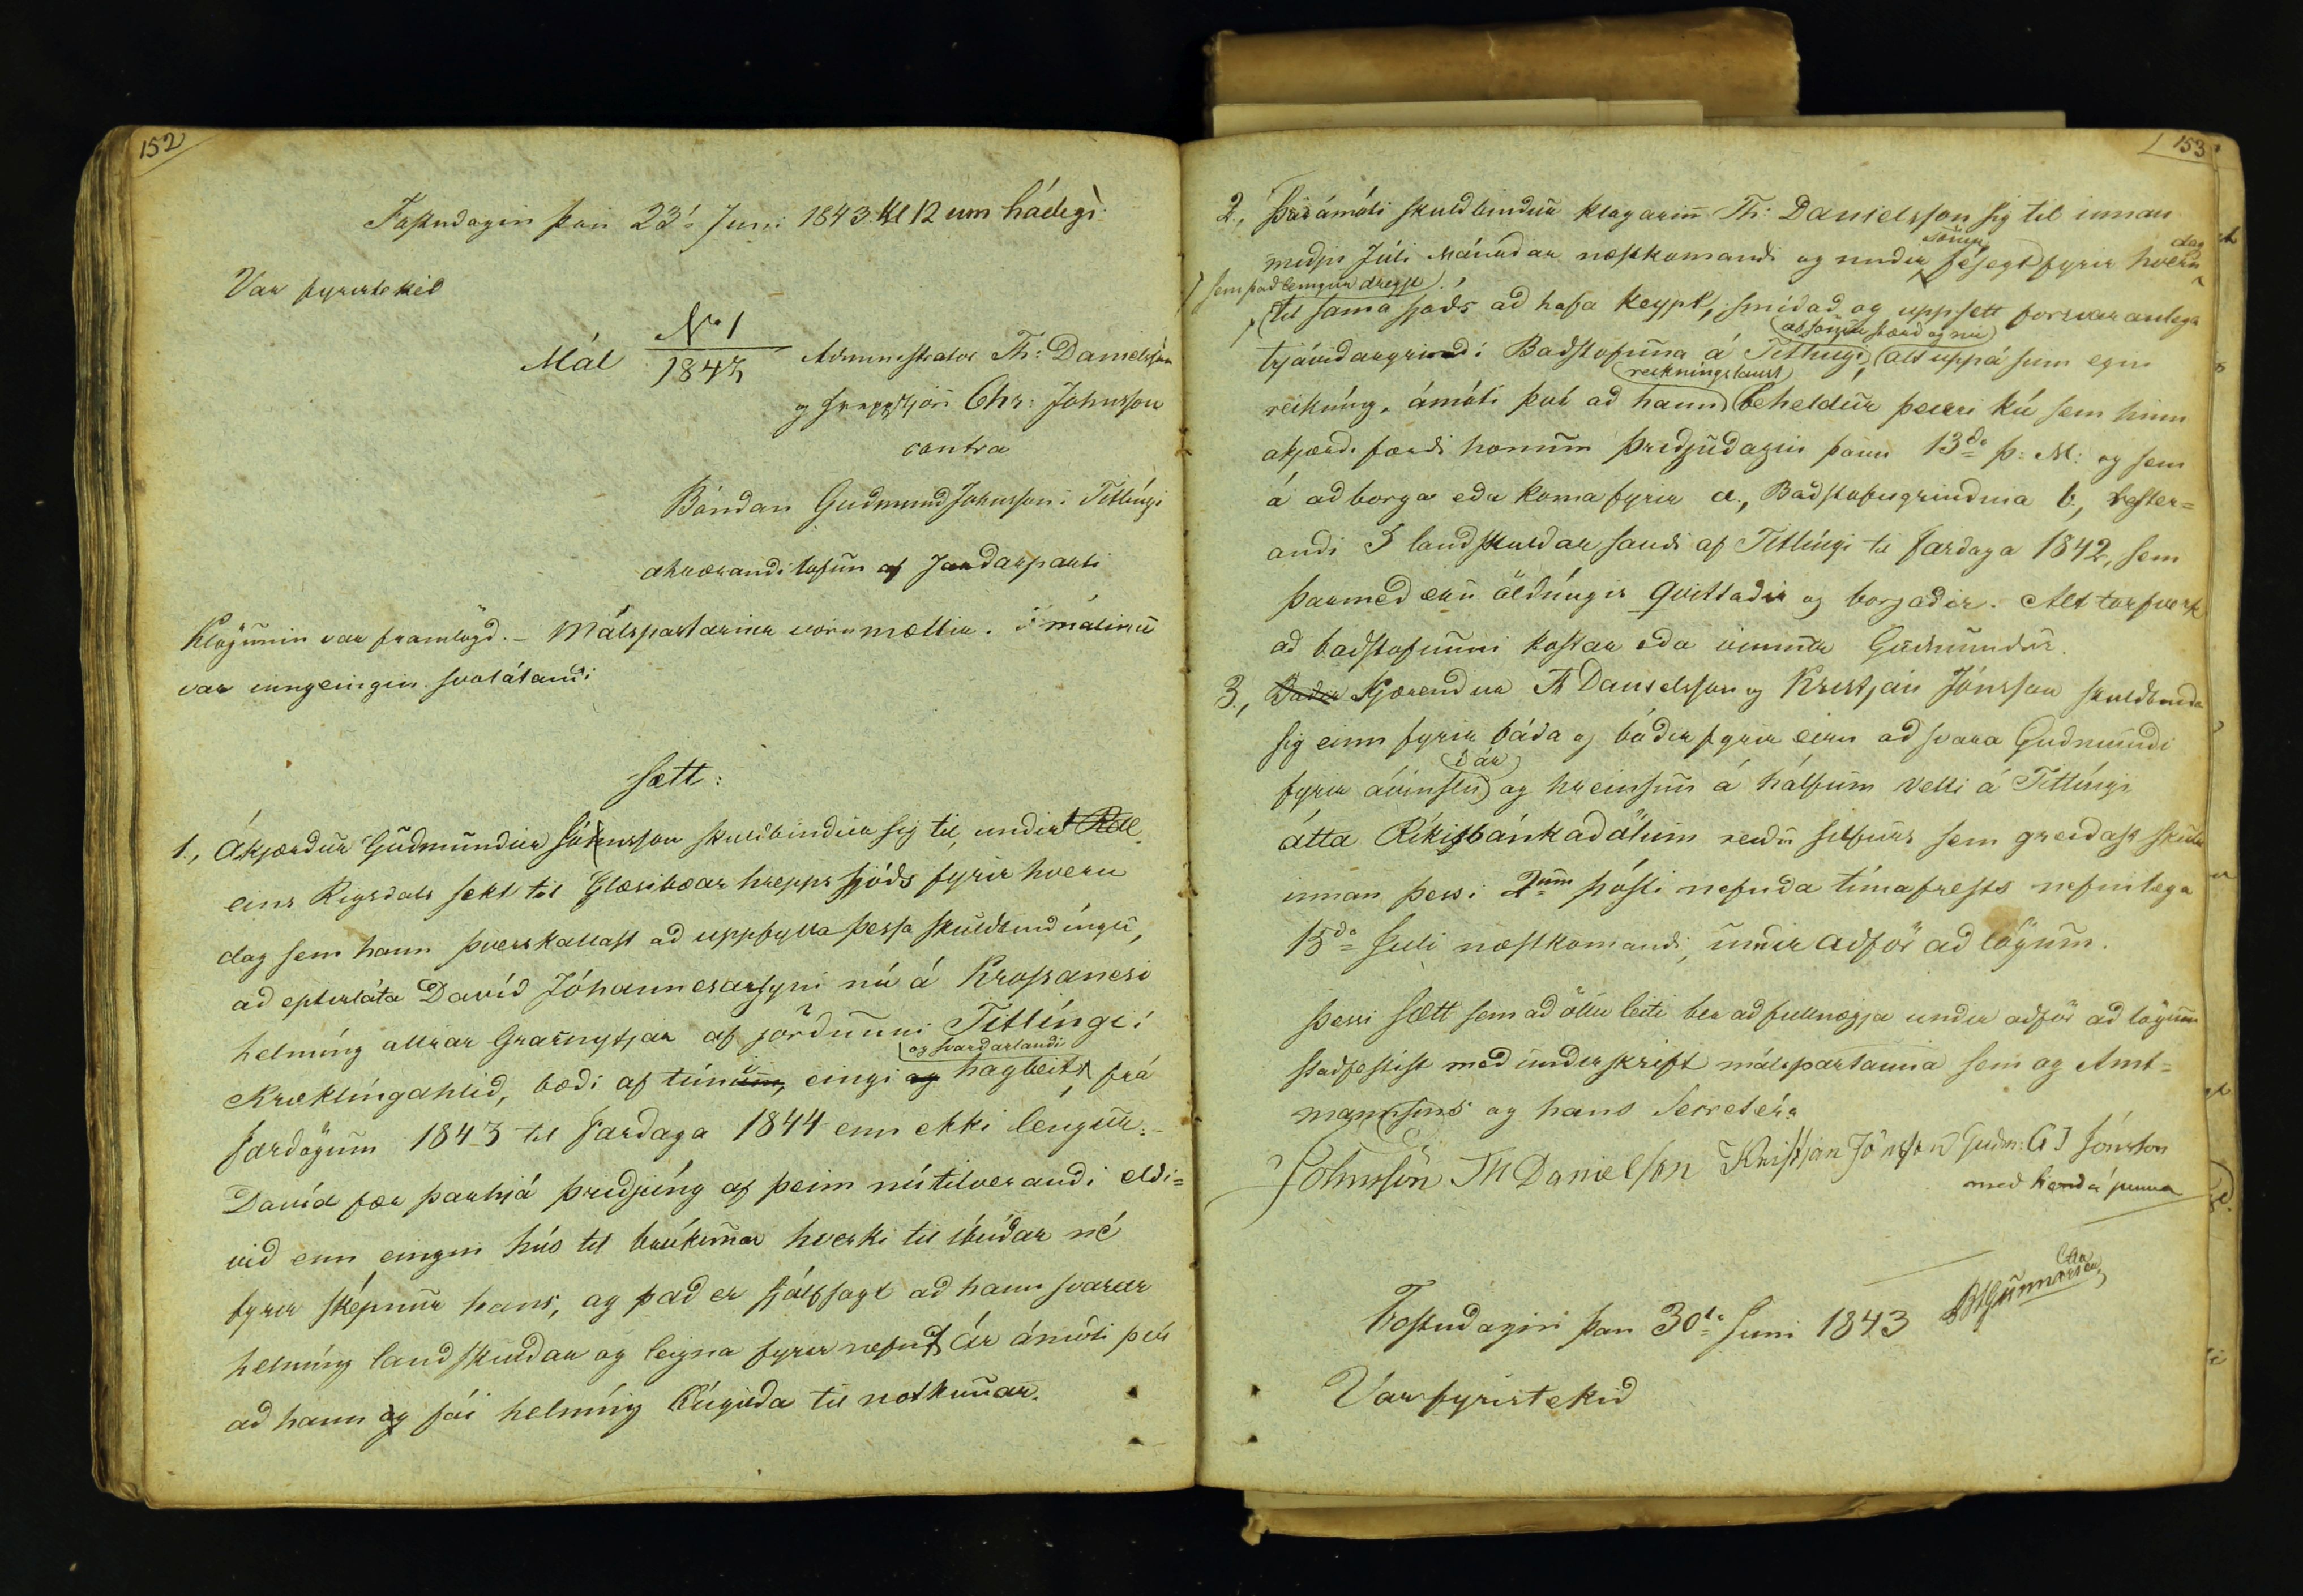 152
Fostudagin þan 23ða Juni 1843 Kl 12 um hádegi
Var fyrirtekid
Mál No 1 / 1843 Administrator Th: Danielsson
og hreppstjóri Chr: Johnsson
contra
Bóndan Gudmund Johnsson i Titlíngi
ahrærandi tofun af Jardarparti
Klögunin var framlögd. – Málspartarinir voru mættir. i málinu
var inngeingin svolátandi
Sætt:
1., Ákjærdur Gudmundur Jóhnsson skuldbindur sig til, undir
eins Rigsdals sekt til Glæsibæar hrepps sjóds fyrir hvern
dag sem hann þverskallast ad uppfylla þessa skuldbindíngu,
ad epterláta David Jóhannesarsyni nú á Krossanesi
helmíng allrar Grasnytjar af jördunni Titlíngi í
og svardarlandi
Kræklíngahlid, bædi af túni, eingi og hagbeit, frá
Fardögum 1843 til Fardaga 1844 enn ekki lengur.–
David fær þarhjá þridjúng af þeim nútilverandi eldi=
vid enn eingin hús til brúkunar hverki til íbúdar né
fyrir skepnur hans, og þad er sjálfsagt ad hann svarar
helmíng landskuldar og leigna fyrir nefnt ár ámóti því
ad hann og fái helmíng kúgilda til notkunar.
153
2., Þarámóti skuldbindur klagarin Th: Danielsson sig til innan
sömu
dag
midjis Júli Mánudar næstkomandi og undir fésegt fyrir hvern
sem það leingur dregst
til sama sjóds ad hafa keypt, smídad og uppsett forsvaranlega
af sömu stærd og nú
trjávidargrind i Badstofuna á Titlingi, alt uppá sinn egin
reikningslaust
reikníng, ámóti því ad hann beheldur þeirri kú sem hinn
akjærdi færdi honum þridjudagin þann 13da þ: M: og sem
á ad borga eda koma fyrir a., Badstofugrindina b., rester=
andi 3 landskuldar saudi af Titlíngi til Fardaga 1842, sem
þarmed eru öldúngis qvittadir og borgadir. Alt torfverk
ad badstofunni kostar eda vinnur Gudmundur.
3., Kjærendur Th Danielsson og Kristján Jónsson skuldbinda
sig einn fyrir báda og bádir fyrir einn ad svara Gudmundi
i ár
fyrir ávinslu og hreinsun á hálfum velli á Titlíngi
átta Ríkisbánkadölum reidu silfurs sem greidast skulu
innan þess i 2um pósti nefnda tímafrests nefnilega
15da Juli næstkomandi, undir adför ad lögum.
Þessi Sætt sem ad öllu leiti ber ad fullnægja under adför ad lögum
stadfestist med underskrift málspartanna sem og Amt=
mannsins og hans Secretera
Johnsson Th Danielson Kristján Jónsson Gudm: G J Jónsson
med handsöludum penna
Fostudagin þan 30ta Juni 1843
Var fyrirtekid